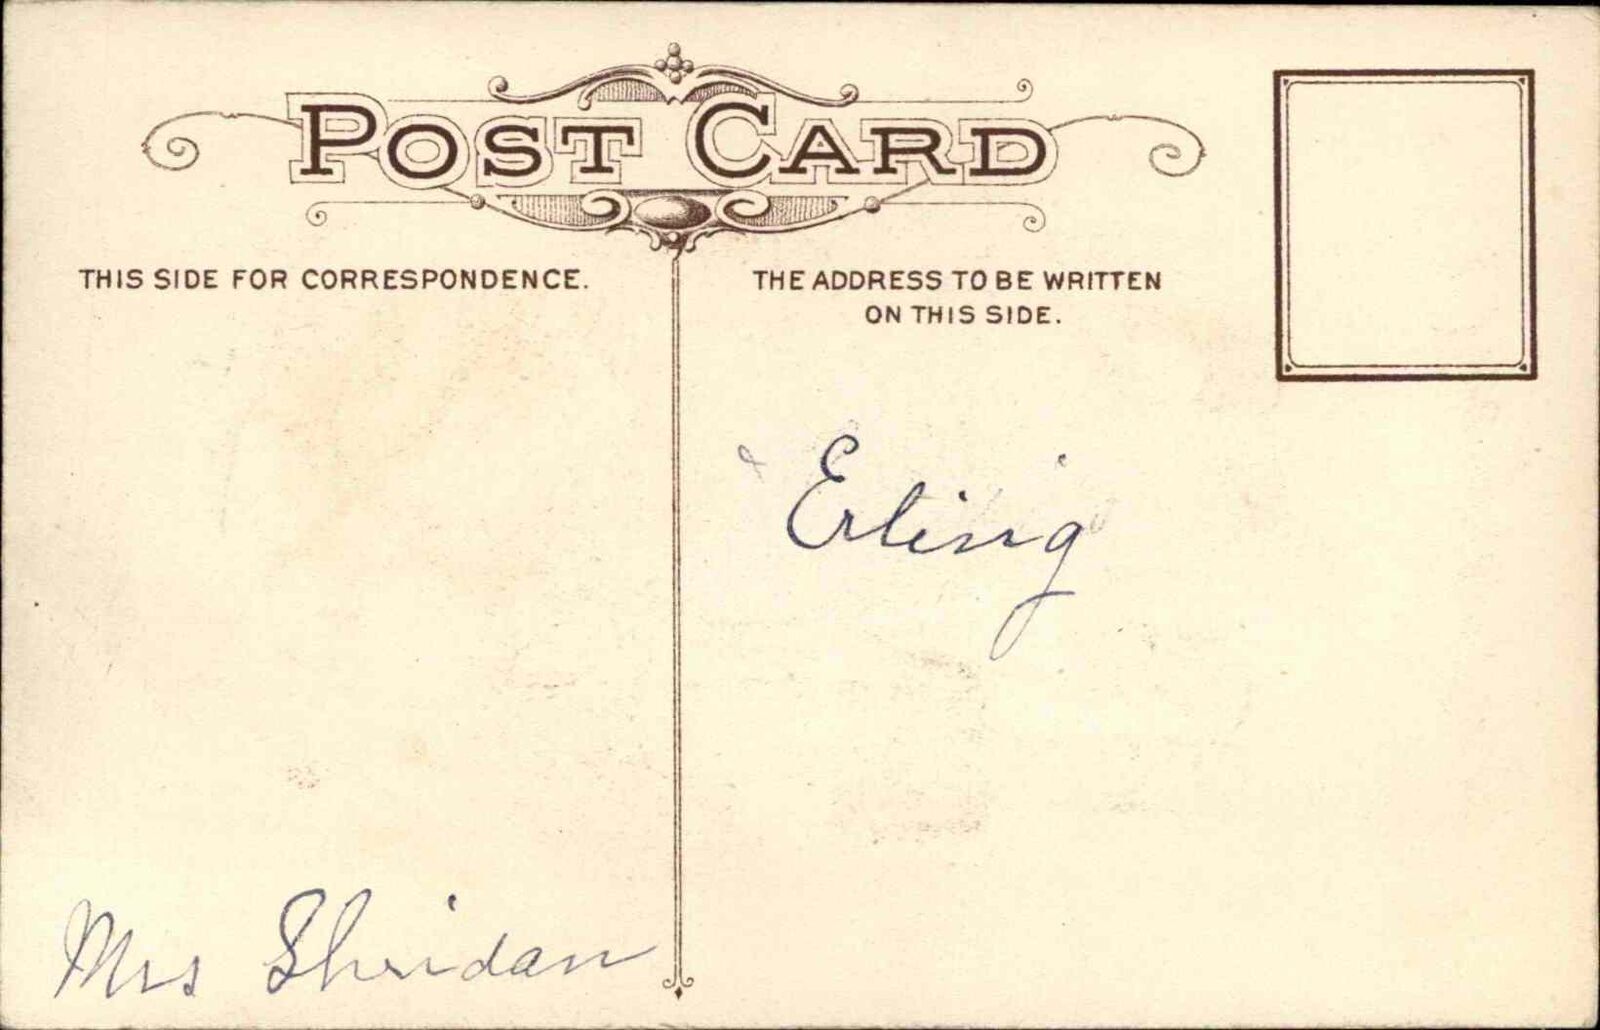 POST CARD
THIS SIDE FOR CORRESPONDENCE.
THE ADDRESS TO BE WRITTEN
ON THIS SIDE.
Erling
Mrs Sheridan